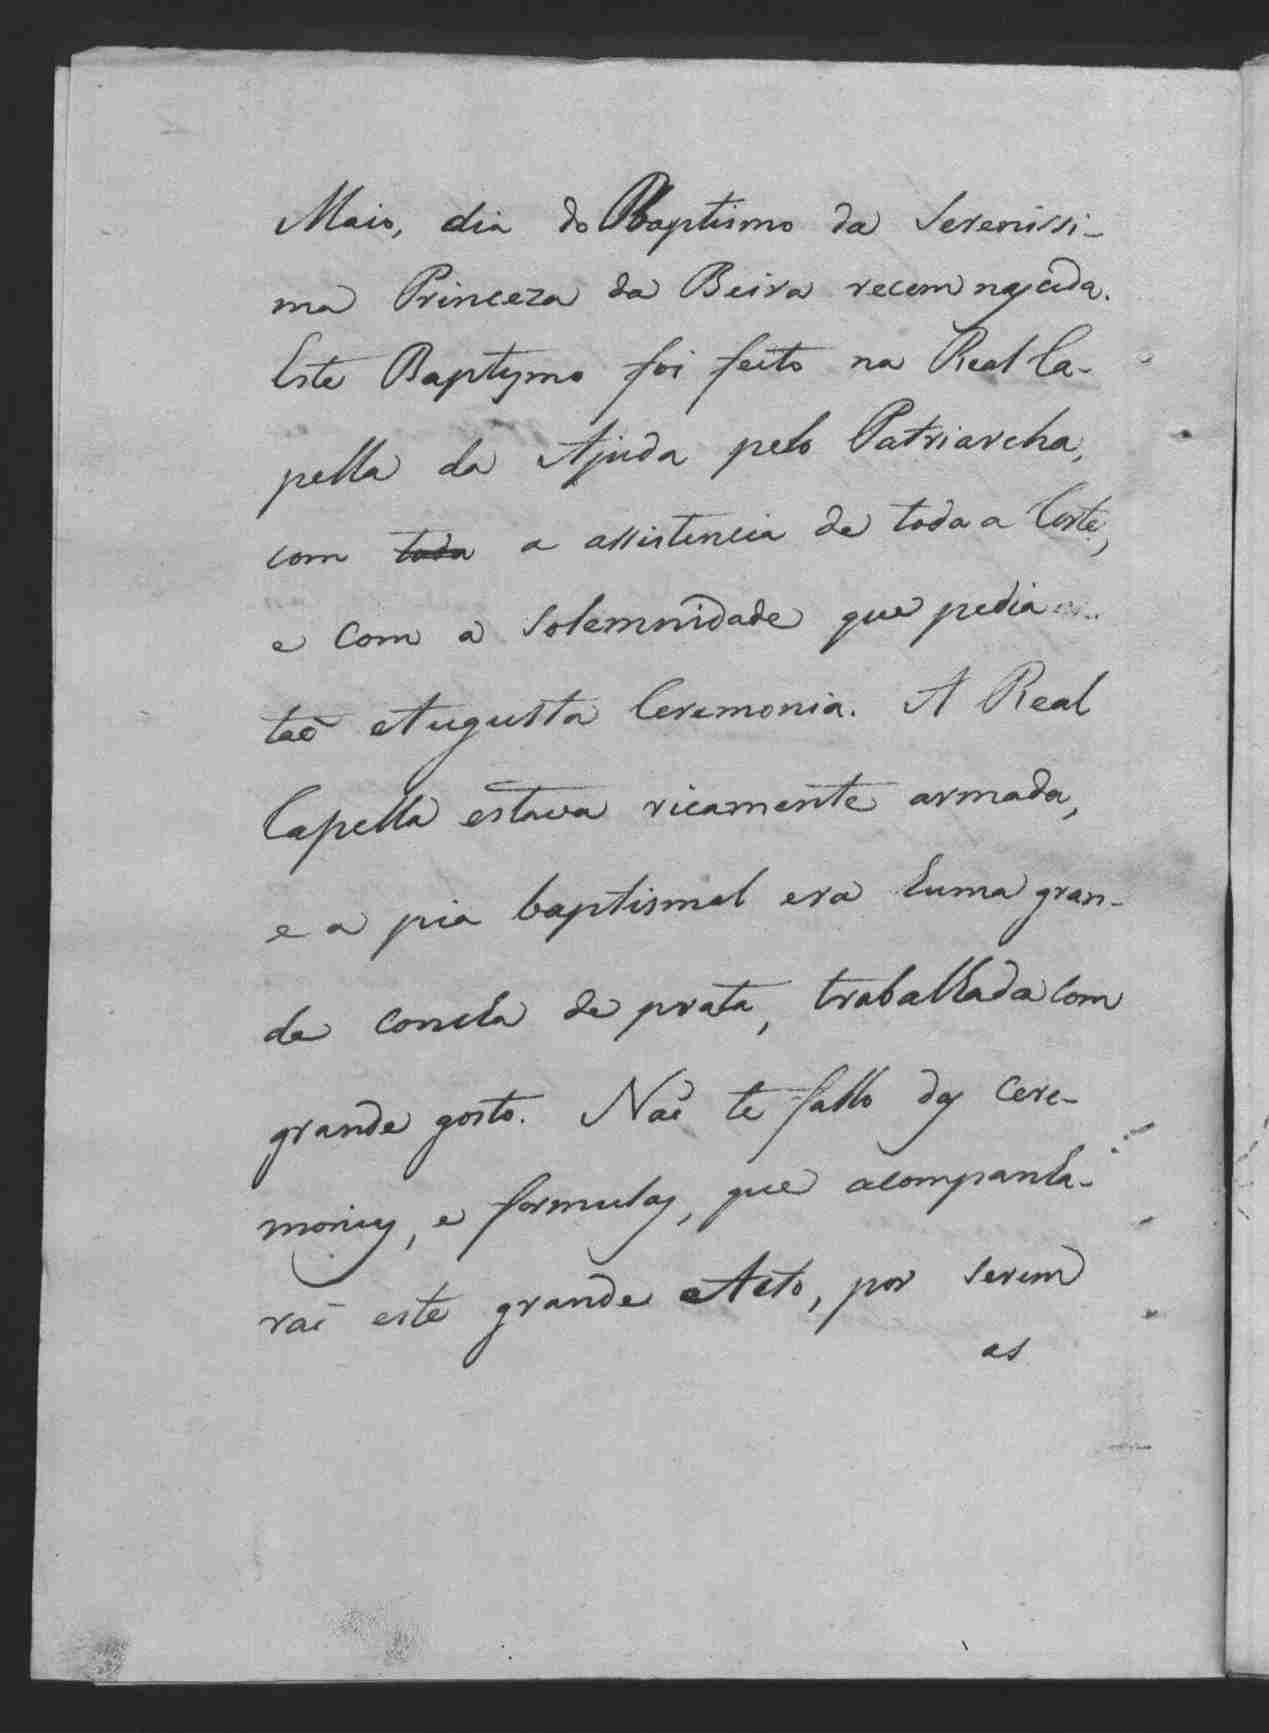 Maio, dia do Baptismo da Serenissi-
ma Princeza da Beira recem nascida.
Este Baptismo foi feito na Real Ca-
pella da Ajuda pelo Patriarcha,
com toda a assistencia de toda a Corte,
e com a solemnidade que pedia
taõ Augusta Ceremonia. A Real
Capella estava ricamente armada,
e a pia baptismal era huma gran-
de concha de prata, trabalhada com
grande gosto. Naõ te fallo das Cere-
monias, e formulas, que acompanha-
raõ este grande Acto, por serem
as